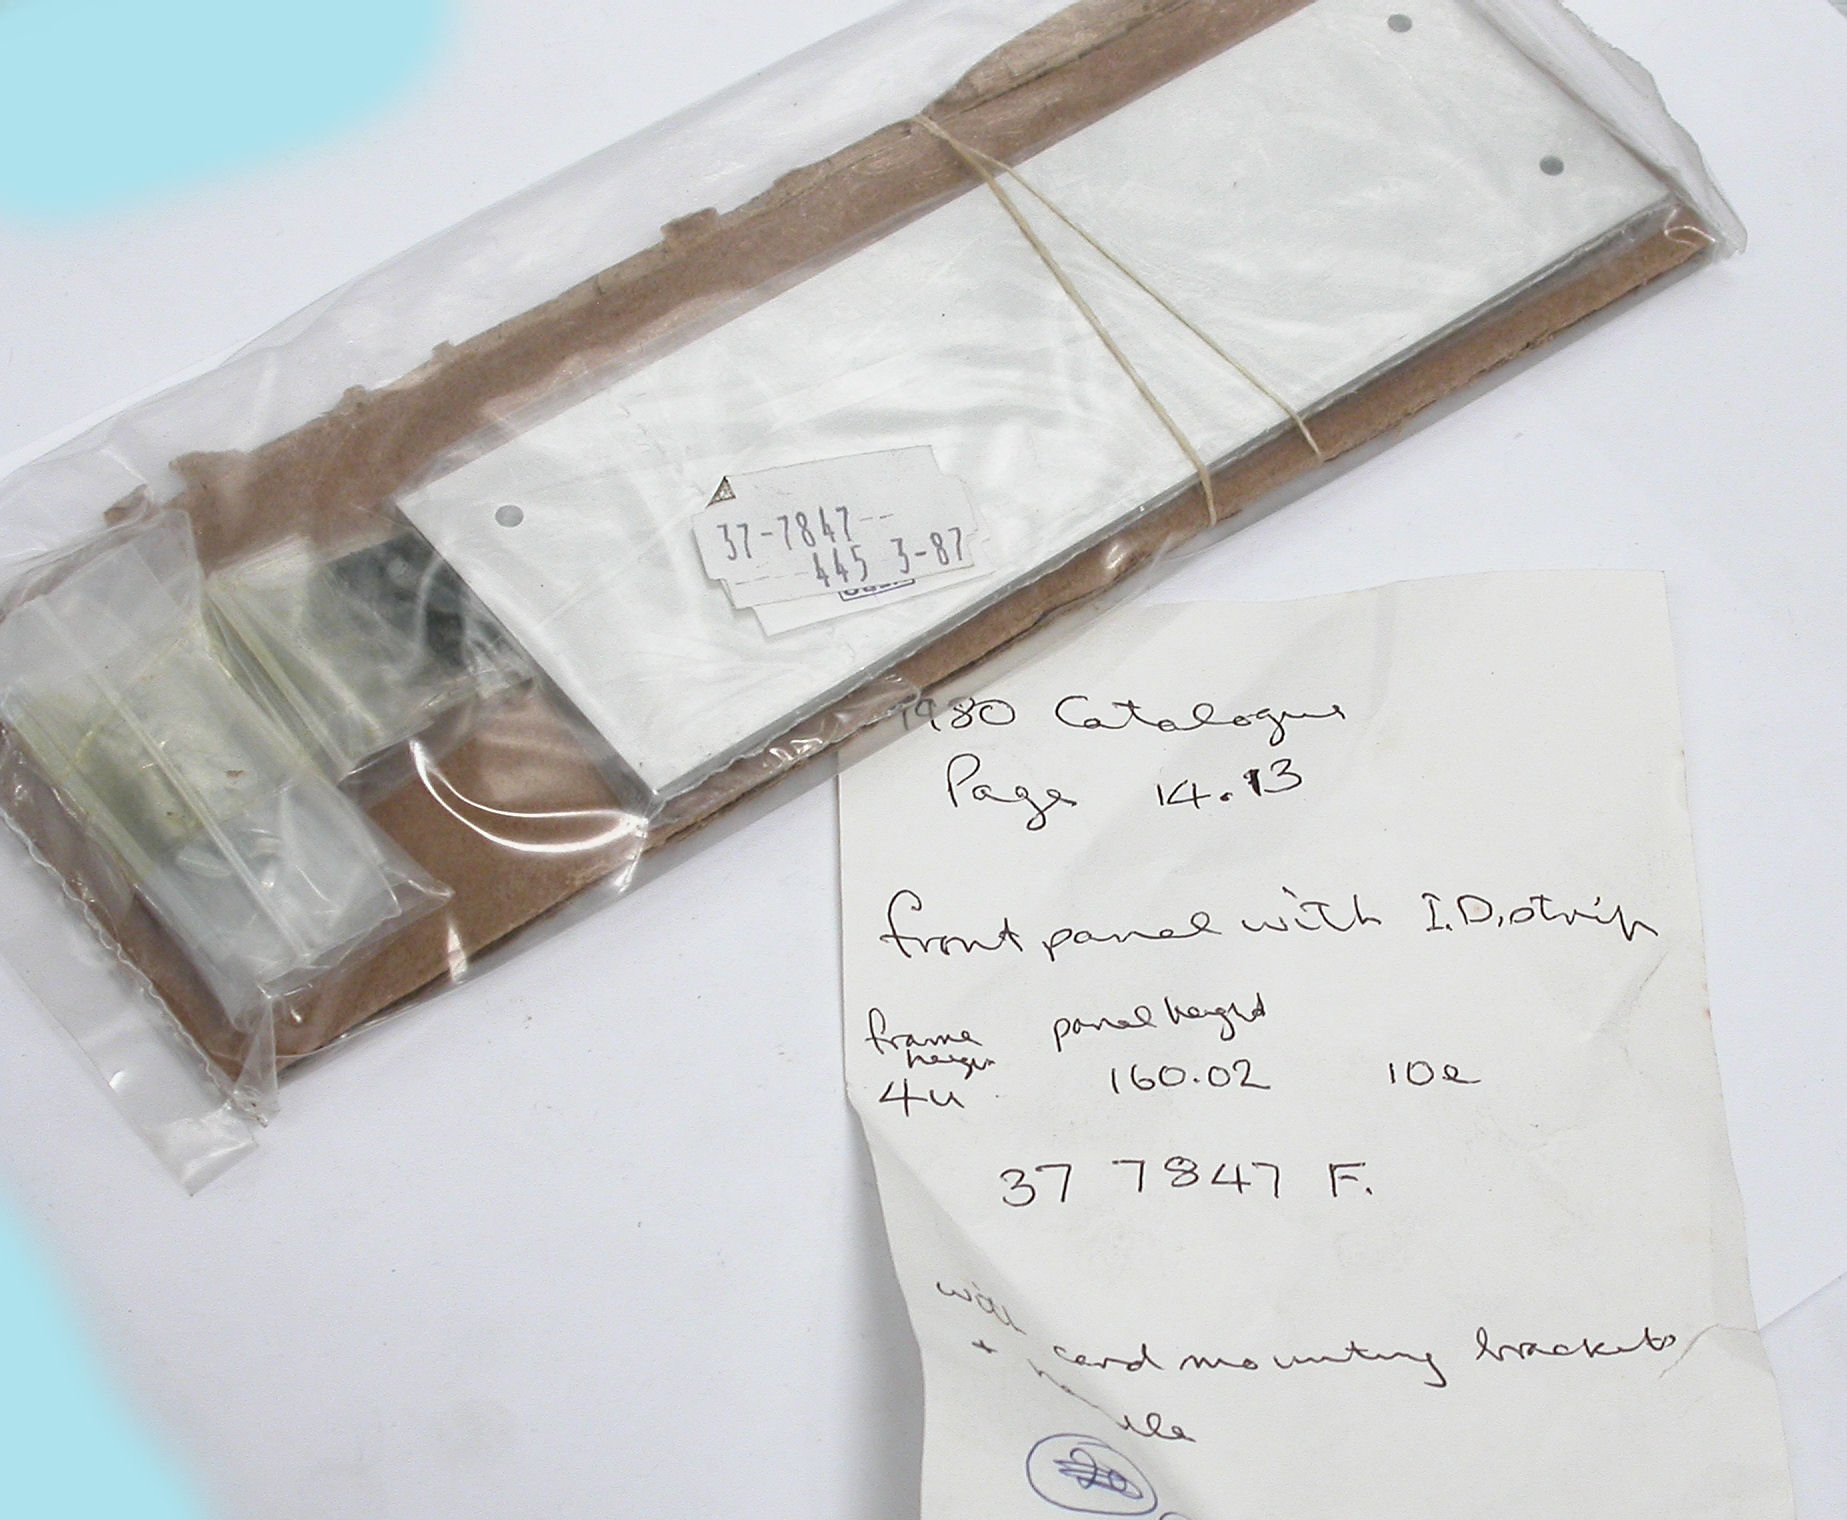 37-7847--
----445 3-87
1980 Catalogue
Page 14.13
front panel with I.D. strip
frame panel height
height
4u 160.02 10e
37 7847 F.
with
+ card mounting brackets